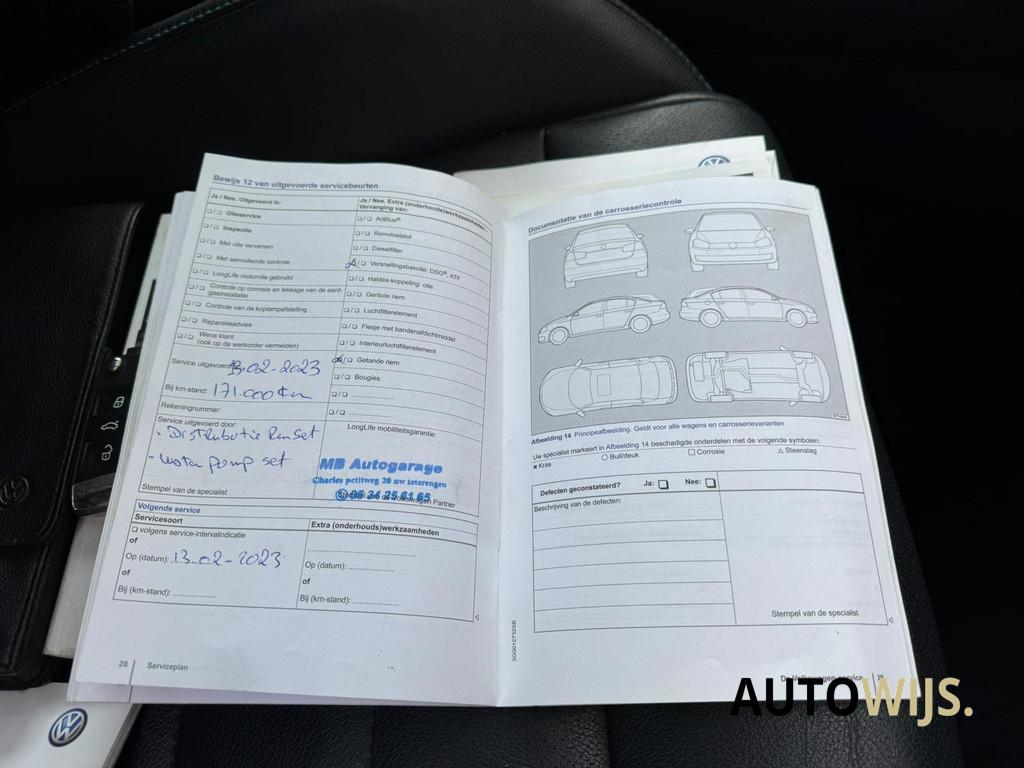 Bewijs 12 van uitgevoerde servicebeurten
Ja / Nee. Uitgevoerd is:
❑ / ❑ Olieservice
❑ / ❑ Inspectie
❑ / ❑ Met olie verversen
❑ / ❑ Met aanvullende controle
❑ / ❑ LongLife motorolie gebruikt
❑ / ❑ Controle op corrosie en lekkage van de aard-
gasinstallatie
❑ / ❑ Controle van de koplampafstelling
❑ / ❑ Reparatieadvies
❑ / ❑ Wens klant
(ook op de werkorder vermelden)
Ja / Nee. Extra (onderhouds)werkzaamheden
Vervanging van:
❑ / ❑ AdBlue®
❑ / ❑ Remvloeistof
❑ / ❑ Dieselfilter
❑ / ❑ Versnellingsbakolie: DSG®, ATF
❑ / ❑ Haldex-koppeling: olie
❑ / ❑ Geribde riem
❑ / ❑ Luchtfilterelement
❑ / ❑ Flesje met bandenafdichtmiddel
❑ / ❑ Interieurluchtfilterelement
❑ / ❑ Getande riem
❑ / ❑ Bougies
❑ / ❑ ................
❑ / ❑ ................
Service uitgevoerd 13.02-2023
Bij km-stand: 171.000 km
Rekeningnummer:
Service uitgevoerd door:
- Distributie
- water pomp set
Stempel van de specialist
LongLife mobiliteitsgarantie:
MB Autogarage
Charles petitweg 20
06 24 25 61 65
Volkswagen Partner
Volgende service
Servicesoort
❑ volgens service-intervalindicatie
of
Op (datum): 13.02-2023
of
Bij (km-stand): ................
Extra (onderhouds)werkzaamheden
................
Op (datum): ................
of
Bij (km-stand): ................
28 Serviceplan
Documentatie van de carrosseriecontrole
Afbeelding 14 Principeafbeelding. Geldt voor alle wagens en carrosserievarianten
Uw specialist markeert in Afbeelding 14 beschadigde onderdelen met de volgende symbolen:
× Kras ○ Buil/deuk □ Corrosie △ Steenslag
Defecten geconstateerd? Ja: ❑ Nee: ❑
Beschrijving van de defecten:
Stempel van de specialist
3G0012732SB
AUTOWIJS.